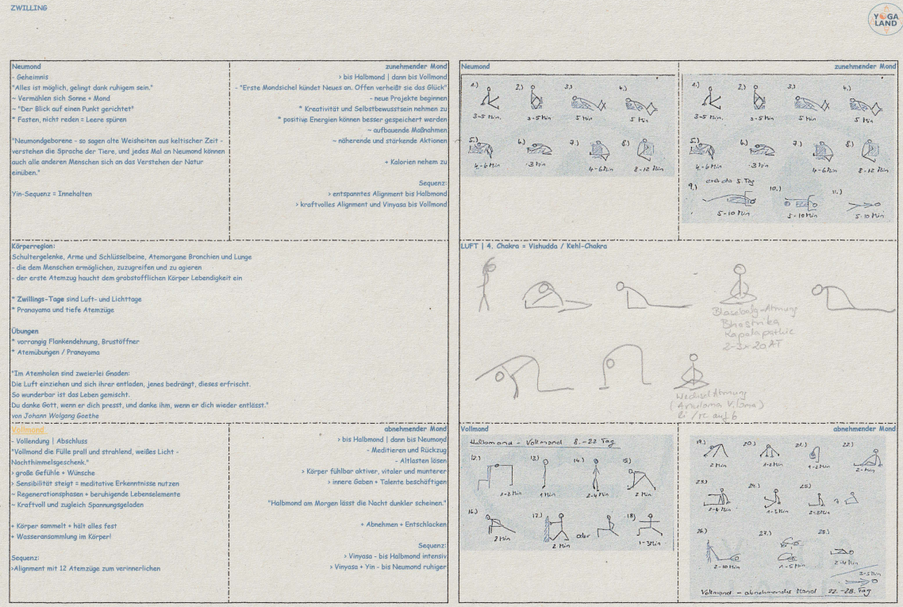 ZWILLING
YOGA
LAND
Neumond
- Geheimnis
"Alles ist möglich, gelingt dank ruhigem sein."
~ Vermählen sich Sonne + Mond
~ "Der Blick auf einen Punkt gerichtet"
* Fasten, nicht reden = Leere spüren
"Neumondgeborene - so sagen alte Weisheiten aus keltischer Zeit -
verstehen die Sprache der Tiere, und jedes Mal an Neumond können
auch alle anderen Menschen sich an das Verstehen der Natur
einüben."
Yin-Sequenz = Innehalten
zunehmender Mond
> bis Halbmond | dann bis Vollmond
- "Erste Mondsichel kündet Neues an. Offen verheißt sie das Glück"
- neue Projekte beginnen
* Kreativität und Selbstbewusstsein nehmen zu
* positive Energien können besser gespeichert werden
~ aufbauende Maßnahmen
~ nährende und stärkende Aktionen
+ Kalorien nehmen zu
Sequenz:
> entspanntes Alignment bis Halbmond
> kraftvolles Alignment und Vinyasa bis Vollmond
Neumond
1.) 2.) 3.) 4.)
3-5 Min. 2-5 Min 5 Min 5 Min
5.) 6.) 7.) 8.)
4-6 Min -3 Min 4-6 Min 8-12 Min
zunehmender Mond
1.) 2.) 3.) 4.)
3-5 Min. 2-5 Min 5 Min 5 Min
5.) 6.) 7.) 8.)
4-6 Min -3 Min 4-6 Min 8-12 Min
5. Tag
9.) 10.) 11.)
5-10 Min 5-10 Min 5-10 Min
Körperregion:
Schultergelenke, Arme und Schlüsselbeine, Atemorgane Bronchien und Lunge
- die dem Menschen ermöglichen, zuzugreifen und zu agieren
- der erste Atemzug haucht dem grobstofflichen Körper Lebendigkeit ein
* Zwillings-Tage sind Luft- und Lichttage
* Pranayama und tiefe Atemzüge
Übungen
* vorrangig Flankendehnung, Brustöffner
* Atemübungen / Pranayama
"Im Atemholen sind zweierlei Gnaden:
Die Luft einziehen und sich ihrer entladen, jenes bedrängt, dieses erfrischt.
So wunderbar ist das Leben gemischt.
Du danke Gott, wenn er dich presst, und danke ihm, wenn er dich wieder entlässt."
von Johann Wolgang Goethe
LUFT | 4. Chakra = Vishudda / Kehl-Chakra
Blasebalg-Atmung
Bhastrika
Kapalapathie
2-3x20 AT
Wechselatmung
(Anuloma Viloma)
Ei / re auf 6
Vollmond
- Vollendung | Abschluss
"Vollmond die Fülle prall und strahlend, weißes Licht -
Nachthimmelsgeschenk."
> große Gefühle + Wünsche
> Sensibilität steigt = meditative Erkenntnisse nutzen
~ Regenerationsphasen + beruhigende Lebenselemente
~ Kraftvoll und zugleich Spannungsgeladen
+ Körper sammelt + hält alles fest
+ Wasseransammlung im Körper!
Sequenz:
>Alignment mit 12 Atemzüge zum verinnerlichen
abnehmender Mond
> bis Halbmond | dann bis Neumond
- Meditieren und Rückzug
- Altlasten lösen
> Körper fühlbar aktiver, vitaler und munterer
> innere Gaben + Talente beschäftigen
"Halbmond am Morgen lässt die Nacht dunkler scheinen."
+ Abnehmen + Entschlacken
Sequenz:
> Vinyasa - bis Halbmond intensiv
> Vinyasa + Yin - bis Neumond ruhiger
Vollmond
Halbmond - Vollmond 8.-22. Tag
12.) 13.) 14.) 15.)
1-2 Min 1 Min 2-4 Min 2 Min
16.) 17.) oder 18.)
2 Min 2 Min 1-3 Min
abnehmender Mond
19.) 20.) 21.) 22.)
2 Min 1-2 Min 1-2 Min 2-5 Min
23.) 24.) 25.)
4-6 Min 1-5 Min 2-3 Min
26.) 27.) 28.)
2-10 Min 1-5 Min 2-4 Min
Vollmond - abnehmender Mond 22.-28. Tag